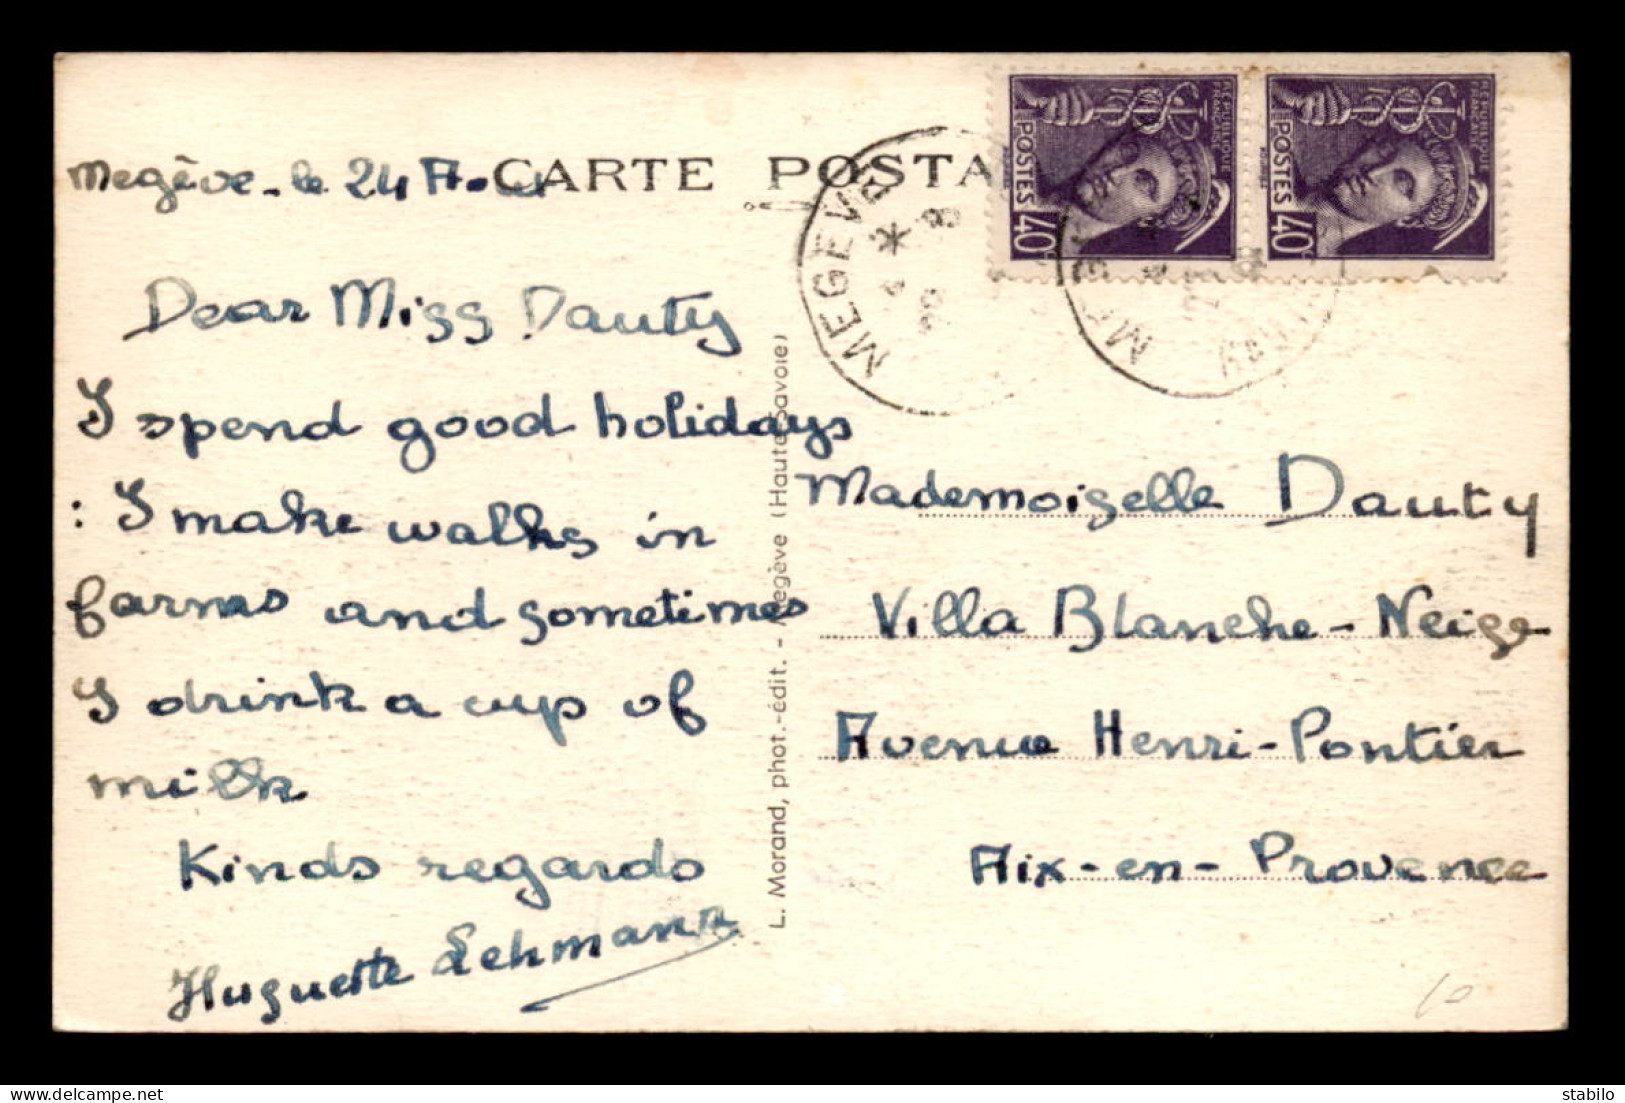 CARTE POSTA
Megève - le 24 A
Dear Miss Dauty
I spend good holidays
: I make walks in
farms and sometimes
I drink a cup of
milk
Kinds regards
Huguette Lehmann
L. Morand, phot.-édit. - Megève (Haute-Savoie)
MEGEVE
RÉPUBLIQUE FRANÇAISE
POSTES
40c
RÉPUBLIQUE FRANÇAISE
POSTES
40c
Mademoiselle Dauty
Villa Blanche-Neige
Avenue Henri-Pontier
Aix-en-Provence
10
stabilo
delcampe.net